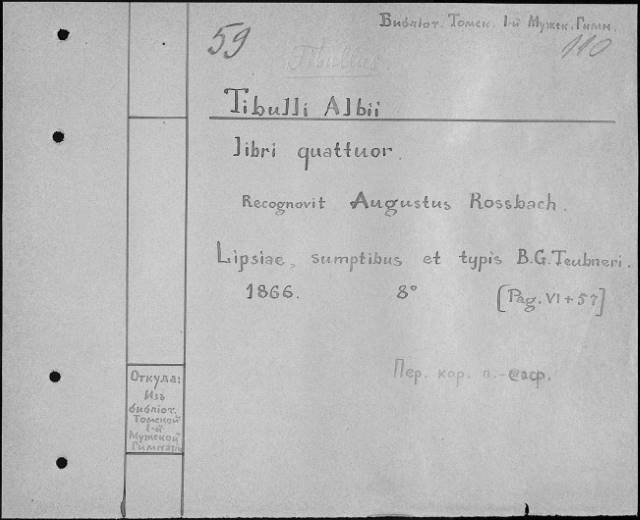 59
Библіот. Томск. 1-й Мужск. Гимн.
110
Tibullus.
Tibulli Albii
libri quattuor.
Recognovit Augustus Rossbach.
Lipsiae, sumptibus et typis B.G. Teubneri.
1866. 8° [Pag. VI + 57]
Пер. кор. п.-саф.
Откуда:
Изъ
библіот.
Томской
1-й
Мужской
Гимназіи